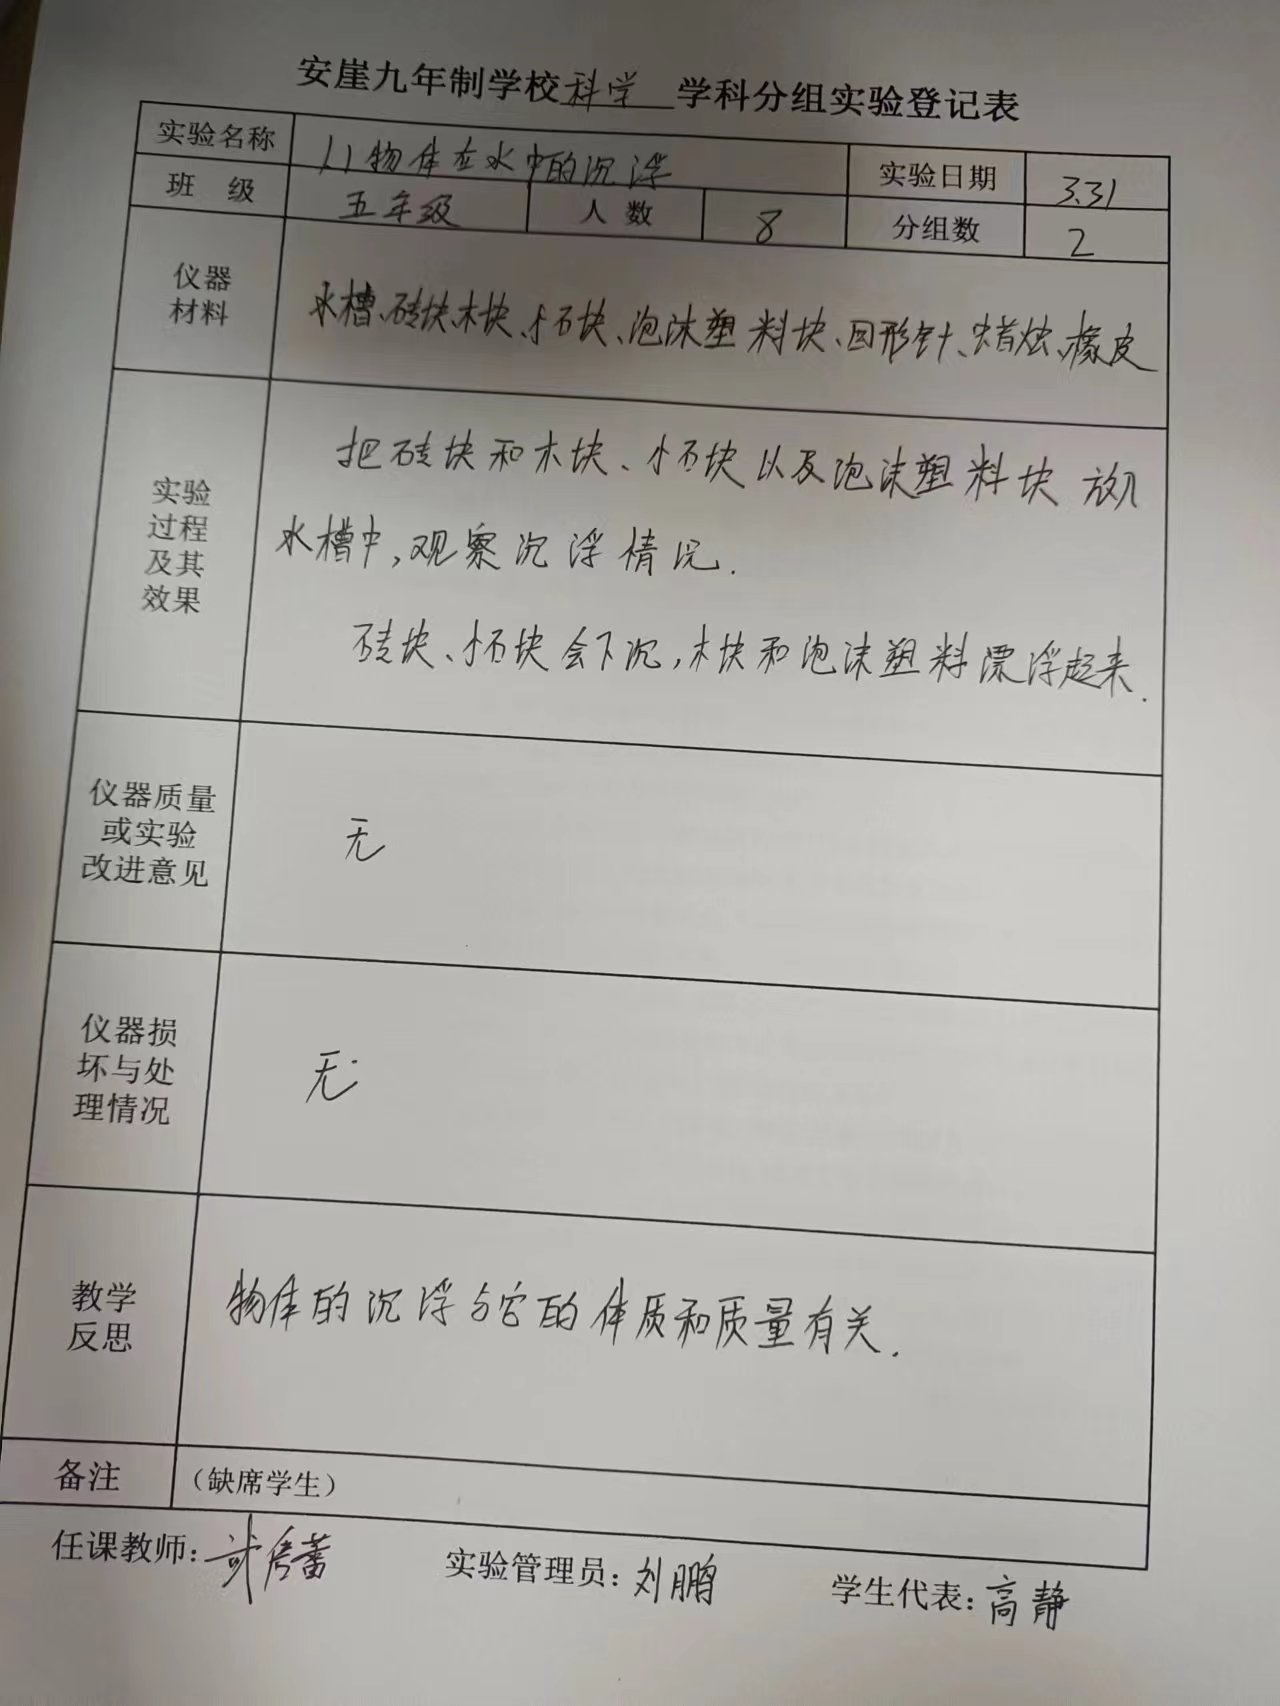 安崖九年制学校科学 学科分组实验登记表
实验名称 (1)物体在水中的沉浮 实验日期 3.31
班 级 五年级 人 数 8 分组数 2
仪器
材料
水槽、砖块、木块、小石块、泡沫塑料块、回形针、蜡烛、橡皮
实验
过程
及其
效果
把砖块和木块、小石块以及泡沫塑料块放入
水槽中,观察沉浮情况.
砖块、小石块会下沉,木块和泡沫塑料漂浮起来.
仪器质量
或实验
改进意见
无
仪器损
坏与处
理情况
无
教学
反思
物体的沉浮与它的体质和质量有关.
备注 (缺席学生)
任课教师: 实验管理员:刘鹏 学生代表:高静